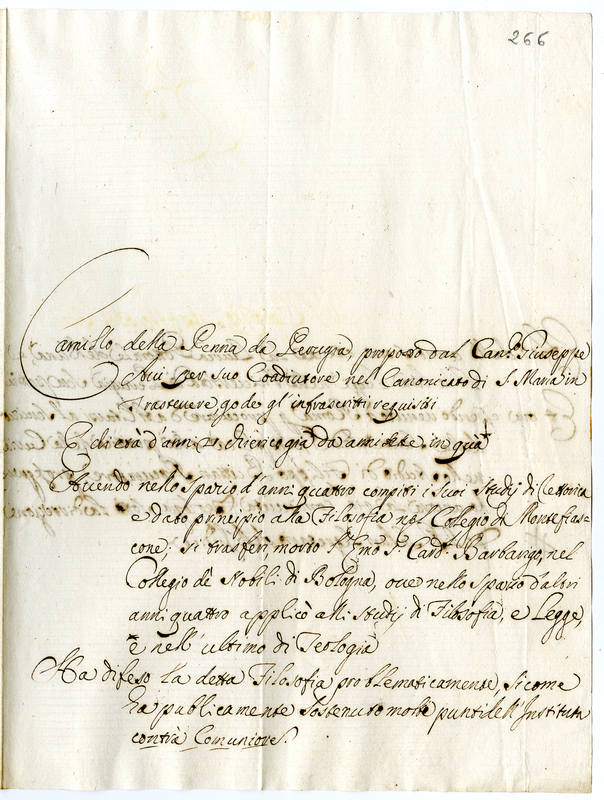 266
Camillo della Penna da Perugia, proposto dal Can.co Giuseppe
per suo Coadiutore nel Canonicato di S. Maria in
Trastevere, gode gl'infrascritti requisiti
È di età d'anni 21 chierico già da anni sete in quà
Avendo nello spazio d'anni quattro compiti i suoi studij di Rettorica
e dato principio alla Filosofia nel Colegio di Montefias=
cone, si trasferì, morto l'Emo S. Card. Barbarigo, nel
Collegio de Nobili di Bologna, ove nello spazio d'altri
anni quattro applicò alli studij di Filosofia, e Legge,
e nell'ultimo di Teologia
Ha difeso la detta Filosofia problematicamente, si come
ha publicamente sostenuto molti punti dell'Instituta
contra Comuniores.